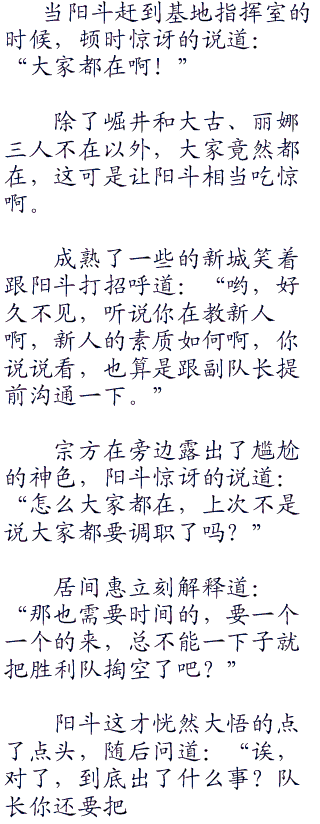 当阳斗赶到基地指挥室的
时候，顿时惊讶的说道：
“大家都在啊！”
除了崛井和大古、丽娜
三人不在以外，大家竟然都
在，这可是让阳斗相当吃惊
啊。
成熟了一些的新城笑着
跟阳斗打招呼道：“哟，好
久不见，听说你在教新人
啊，新人的素质如何啊，你
说说看，也算是跟副队长提
前沟通一下。”
宗方在旁边露出了尴尬
的神色，阳斗惊讶的说道：
“怎么大家都在，上次不是
说大家都要调职了吗？”
居间惠立刻解释道：
“那也需要时间的，要一个
一个的来，总不能一下子就
把胜利队掏空了吧？”
阳斗这才恍然大悟的点
了点头，随后问道：“诶，
对了，到底出了什么事？队
长你还要把